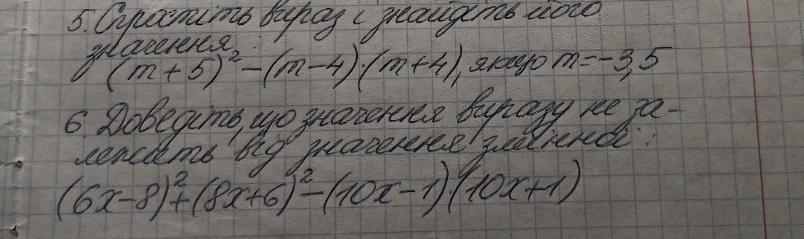 5. Спростіть вираз і знайдіть його
значення:
(m+5)² − (m−4)·(m+4), якщо m = −3,5
6. Доведіть, що значення виразу не за-
лежить від значення змінної:
(6x−8)² + (8x+6)² − (10x−1)·(10x+1)